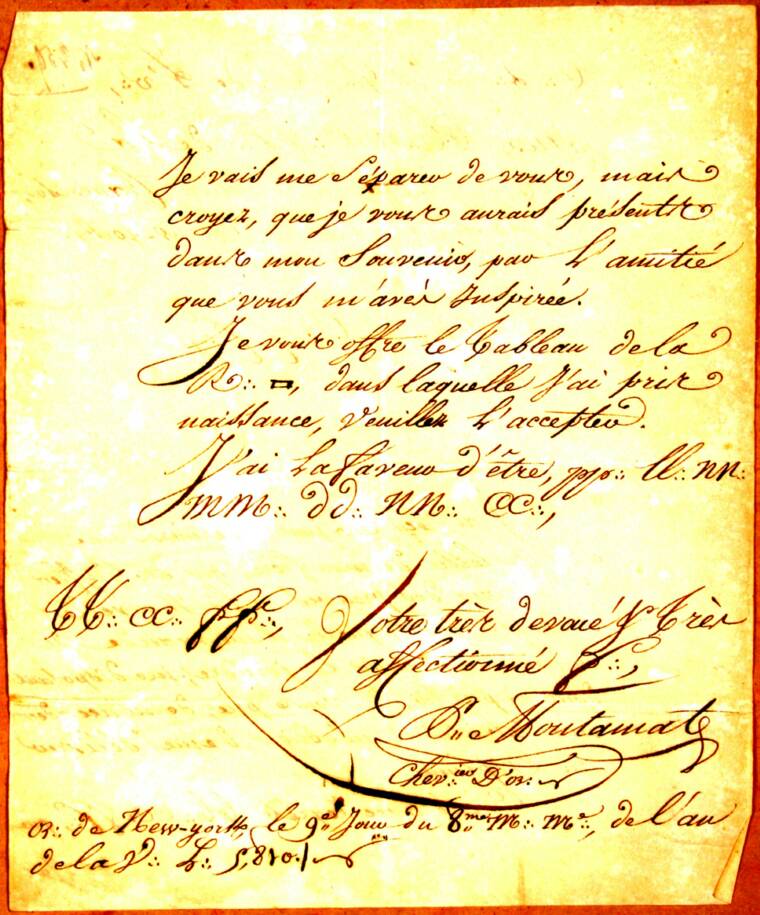 Je vais me Séparer de vous, mais
croyez, que je vous aurais présents
dans mon Souvenir, par L'amitié
que vous m'avés Inspirée.
Je vous offre le Tableau de la
R∴ ▭, dans laquelle J'ai pris
naissance, Veuillez L'accepter.
J'ai La faveur d'être, pp∴ ll∴ nn∴
MM∴ dd∴ NN∴ CC∴,
TT∴ CC∴ ff∴, Votre très devoué & Très
affectionné f∴,
Montamat
Chev∴ier D'or∴
or∴ de New-york, le 9e Jour du 8me M∴ Me, de l'an
de la V∴ L∴ 5,810./